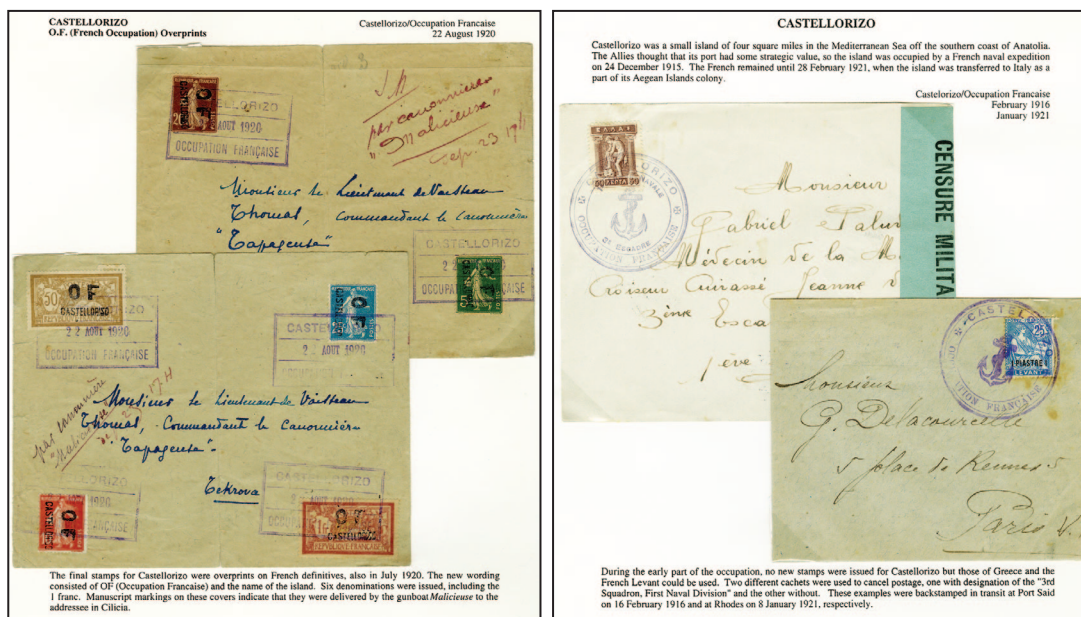 CASTELLORIZO
O.F. (French Occupation) Overprints
Castellorizo/Occupation Francaise
22 August 1920
par canonnière
"Malicieuse"
CASTELLORIZO
AOUT 1920
OCCUPATION FRANÇAISE
Monsieur le Lieutenant de Vaisseau
Thomas, Commandant la Canonnière
"Tapageuse"
CASTELLORIZO
OF
CASTELLORIZO
22 AOUT 1920
OCCUPATION FRANÇAISE
CASTELLORIZO
AOUT 1920
par canonnière
"Malicieuse"
17H
Monsieur le Lieutenant de Vaisseau
Thomas, Commandant la Canonnière
"Tapageuse".
Tekrova
OF
CASTELLORIZO
OF
CASTELLORIZO
REPUBLIQUE FRANÇAISE
The final stamps for Castellorizo were overprints on French definitives, also in July 1920. The new wording
consisted of OF (Occupation Francaise) and the name of the island. Six denominations were issued, including the
1 franc. Manuscript markings on these covers indicate that they were delivered by the gunboat Malicieuse to the
addressee in Cilicia.
CASTELLORIZO
Castellorizo was a small island of four square miles in the Mediterranean Sea off the southern coast of Anatolia.
The Allies thought that its port had some strategic value, so the island was occupied by a French naval expedition
on 24 December 1915. The French remained until 28 February 1921, when the island was transferred to Italy as a
part of its Aegean Islands colony.
Castelorizo/Occupation Francaise
February 1916
January 1921
ΕΛΛΑΣ
ΛΕΠΤΑ
OCCUPATION FRANÇAISE
CENSURE MILITA
Monsieur
Gabriel
Médecin de la M
Croiseur Cuirassé Jeanne
3ème Esca
CASTELLO
25
1 PIASTRE 1
LEVANT
FRANÇAISE
Monsieur
G. Delacourcelle
5 place de Rennes 5
Paris
During the early part of the occupation, no new stamps were issued for Castellorizo but those of Greece and
the French Levant could be used. Two different cachets were used to cancel postage, one with designation of the "3rd
Squadron, First Naval Division" and the other without. These examples were backstamped in transit at Port Said
on 16 February 1916 and at Rhodes on 8 January 1921, respectively.